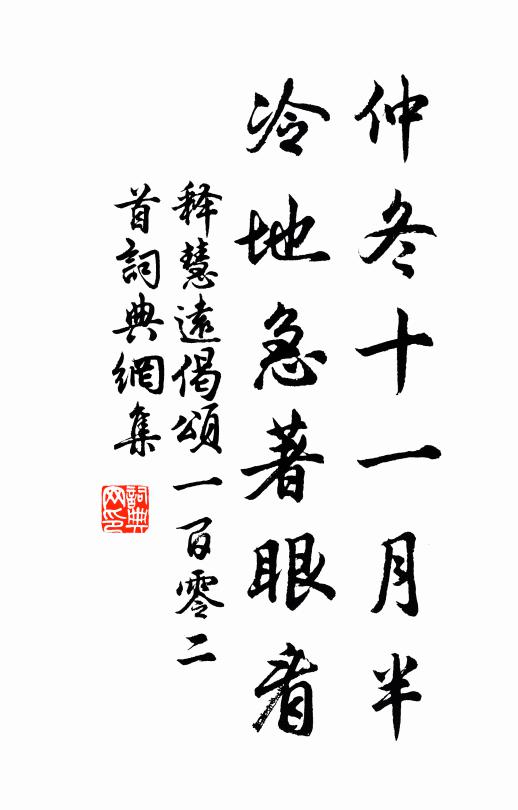 仲冬十一月半
冷地急著眼看
释慧遠偈頌一百零二
首詞典網集
詞典
网印